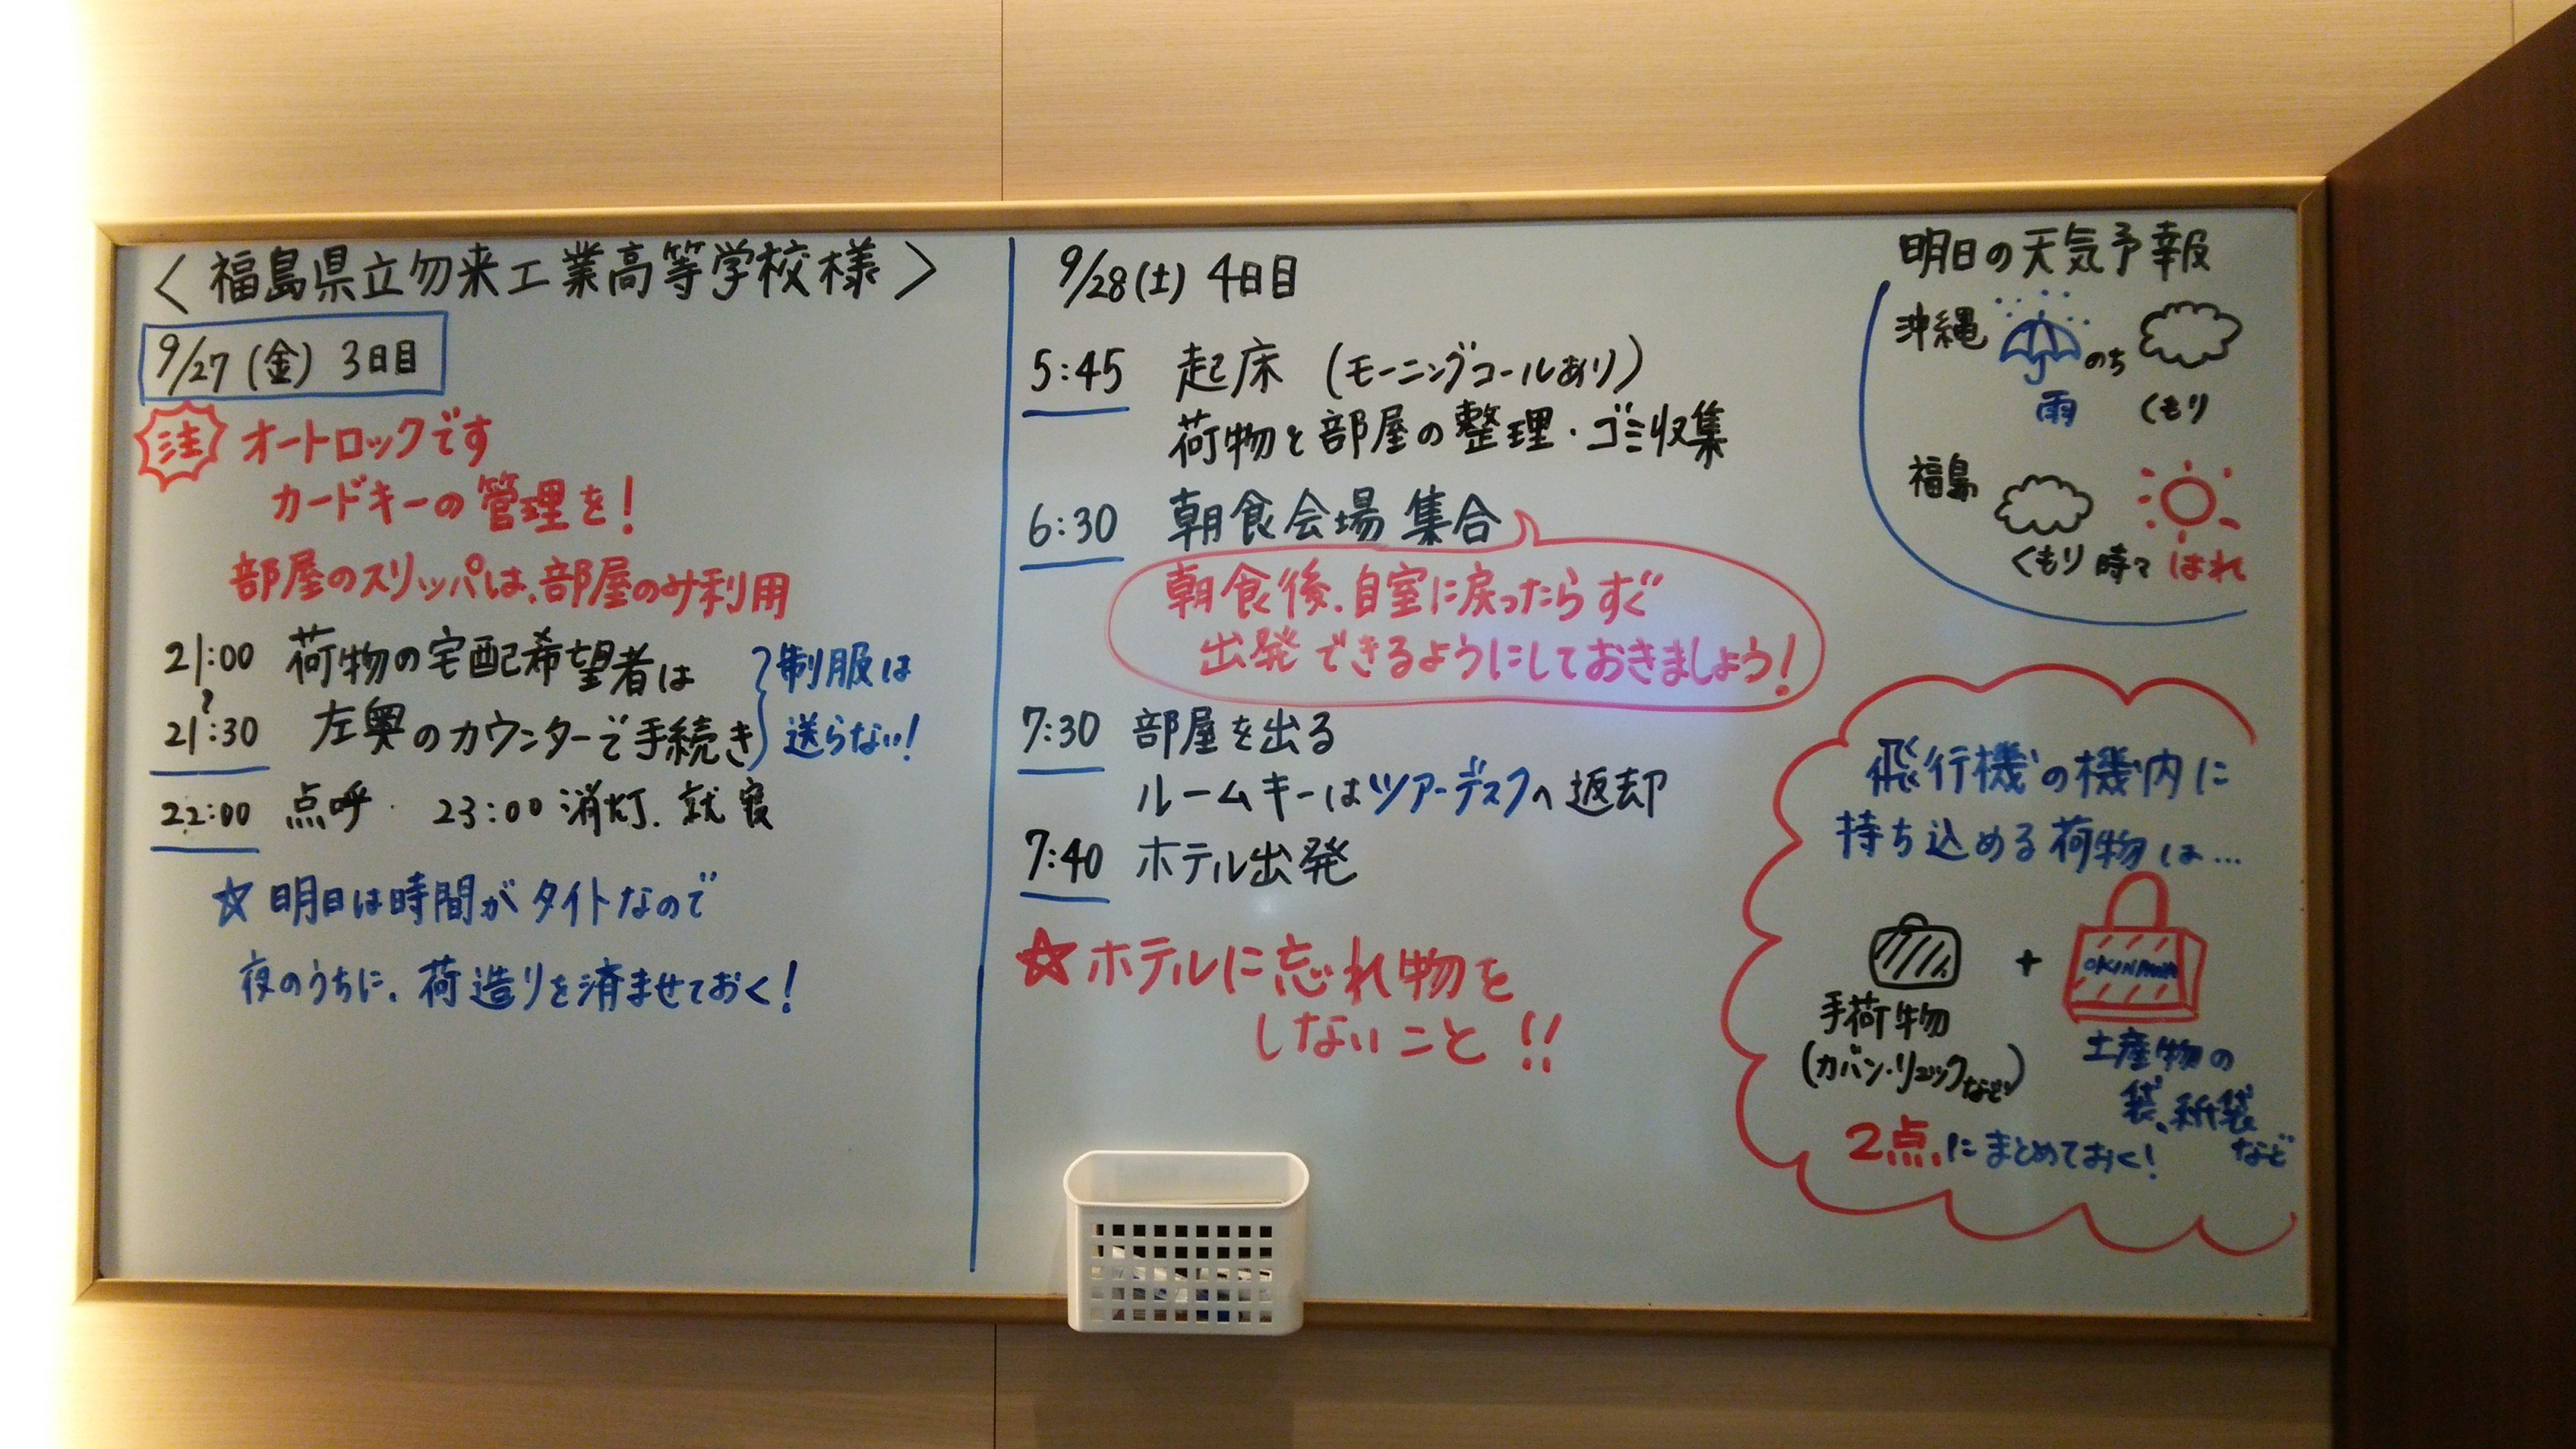 〈福島県立勿来工業高等学校様〉
9/27(金) 3日目
注 オートロックです
カードキーの管理を!
部屋のスリッパは、部屋のみ利用
21:00 荷物の宅配希望者は
〜
21:30 左奥のカウンターで手続き
制服は
送らない!
22:00 点呼. 23:00 消灯. 就寝
☆明日は時間がタイトなので
夜のうちに、荷造りを済ませておく!
9/28(土) 4日目
5:45 起床 (モーニングコールあり)
荷物と部屋の整理・ゴミ収集
6:30 朝食会場 集合
朝食後、自室に戻ったらすぐ
出発できるようにしておきましょう!
7:30 部屋を出る
ルームキーはツアーデスクへ返却
7:40 ホテル出発
☆ホテルに忘れ物を
しないこと!!
明日の天気予報
沖縄 のち
雨 くもり
福島
くもり 時々 はれ
飛行機の機内に
持ち込める荷物は…
+ OKINAWA
手荷物
(カバン・リュックなど)
土産物の
袋、紙袋
など
2点にまとめておく!